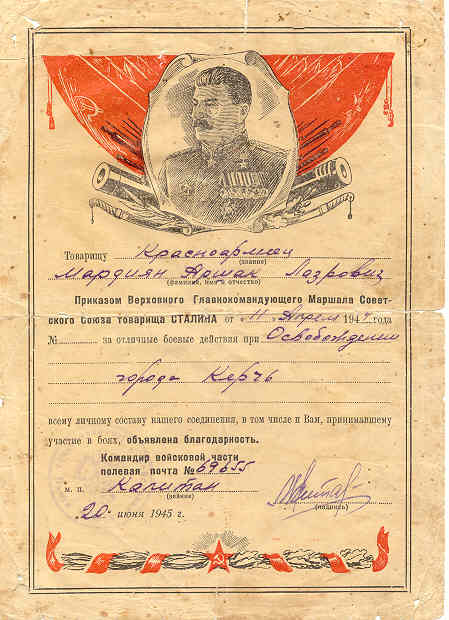 Товарищу Красноармеец
(звание)
Мардиян Аршак Лазрович
(фамилия, имя и отчество)
Приказом Верховного Главнокомандующего Маршала Совет-
ского Союза товарища СТАЛИНА от 11 Апреля 1944 года
№ за отличные боевые действия при Освобождении
города Керчь
всему личному составу нашего соединения, в том числе и Вам, принимавшему
участие в боях, объявлена благодарность.
Командир войсковой части
полевая почта № 69655
м. п. Капитан
(звание)
(подпись)
20 июня 1945 г.